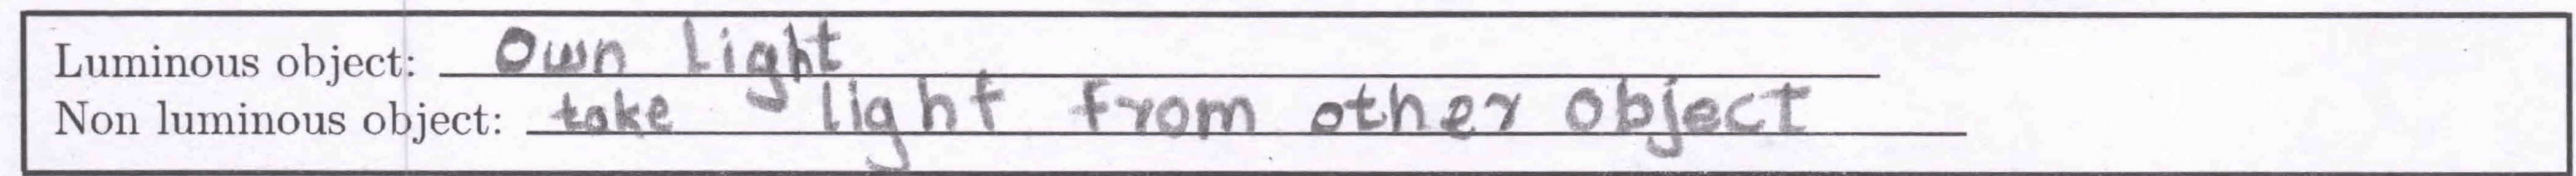 Luminous object: Own light
Non luminous object: take light from other object